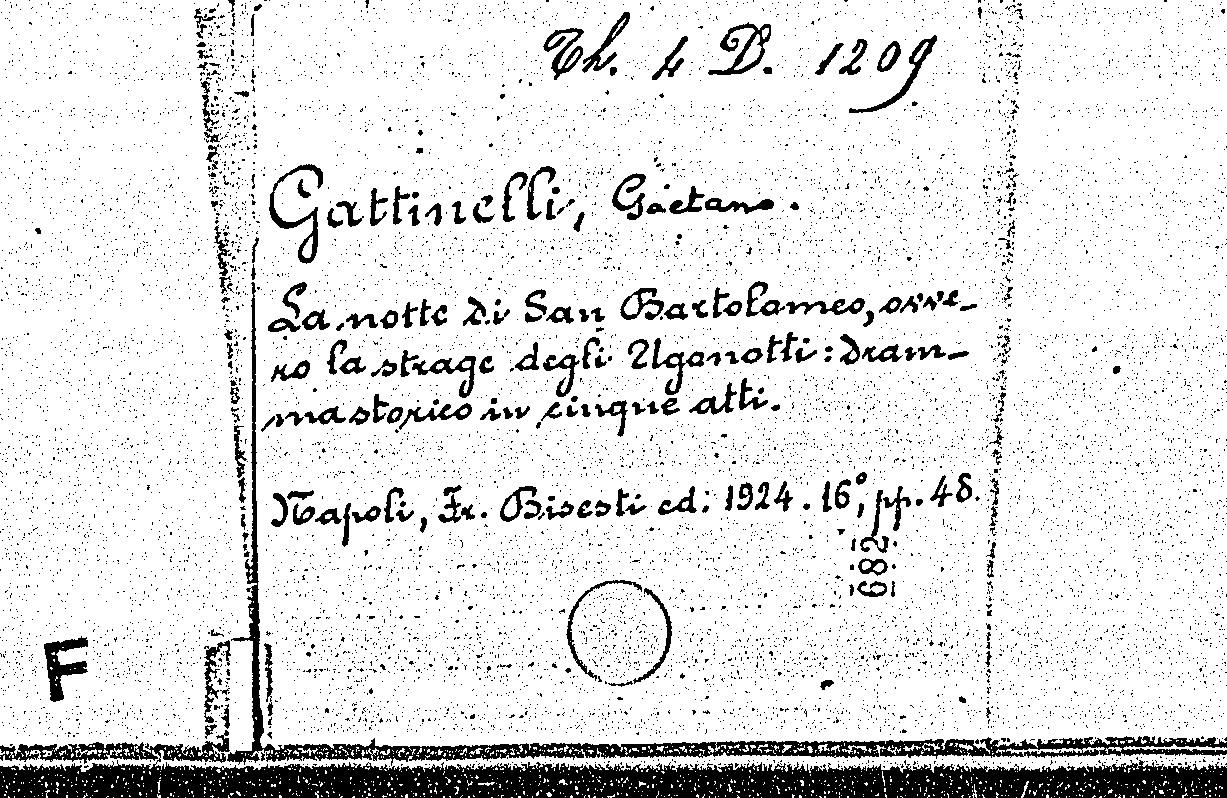 Th. 4 D. 1209
Gattinelli, Gaetano.
La notte di San Bartolomeo, ovve-
ro la strage degli Ugonotti: dram-
ma storico in cinque atti.
Napoli, Fr. Bisesti ed: 1924. 16°, pp. 48.
682
F